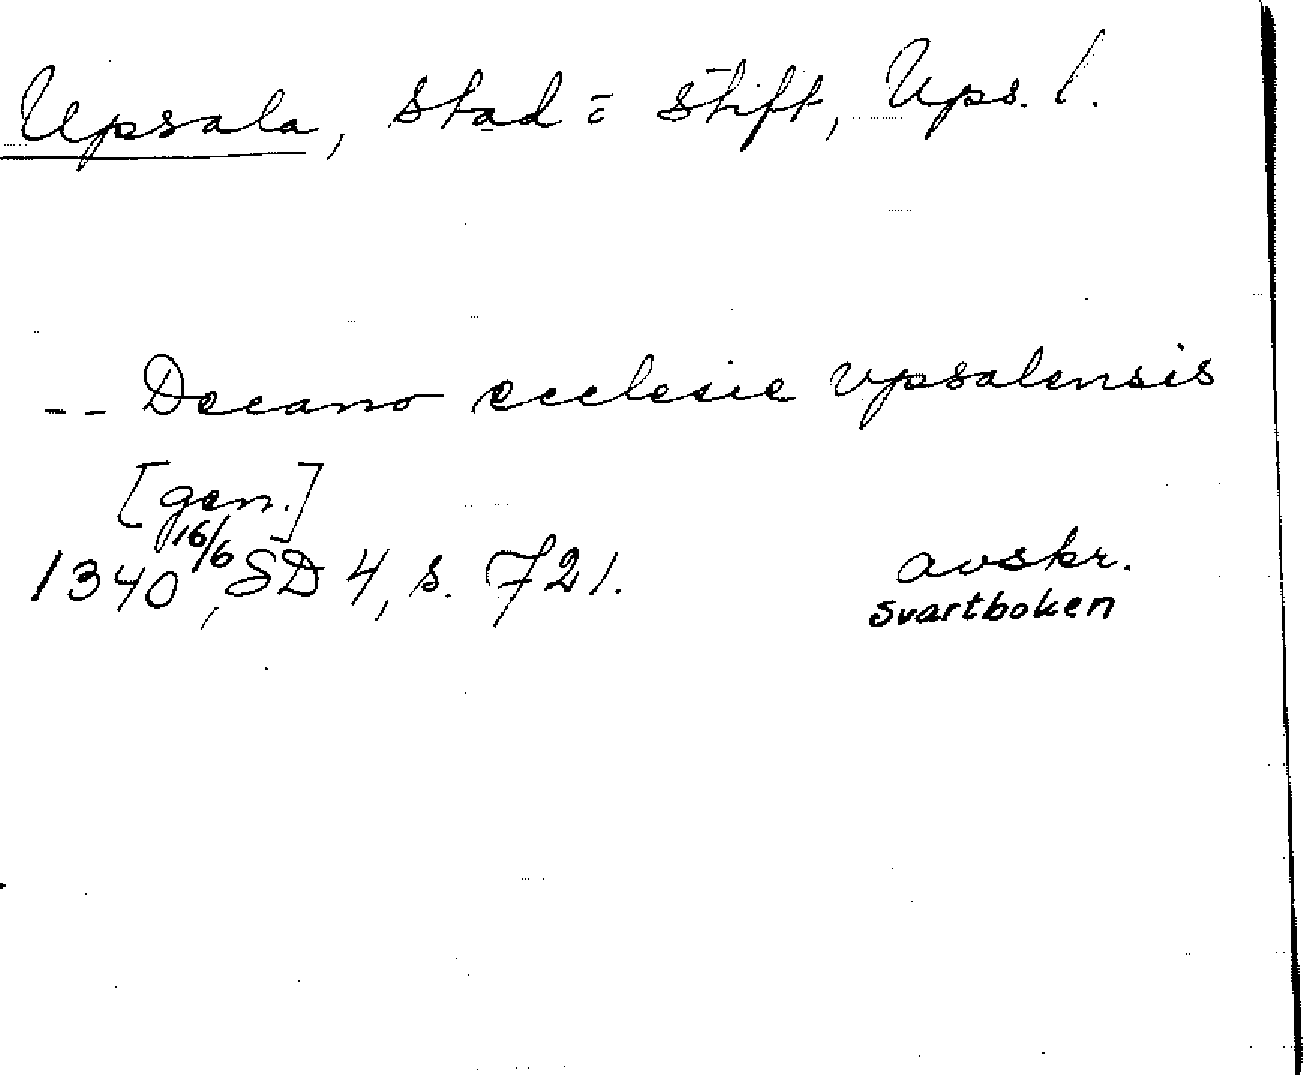 Upsala, stad o stift, Ups. l.
-- Decano ecclesie vpsalensis
[gen.]
1340 16/6, SD 4, s. 721.
avskr.
svartboken